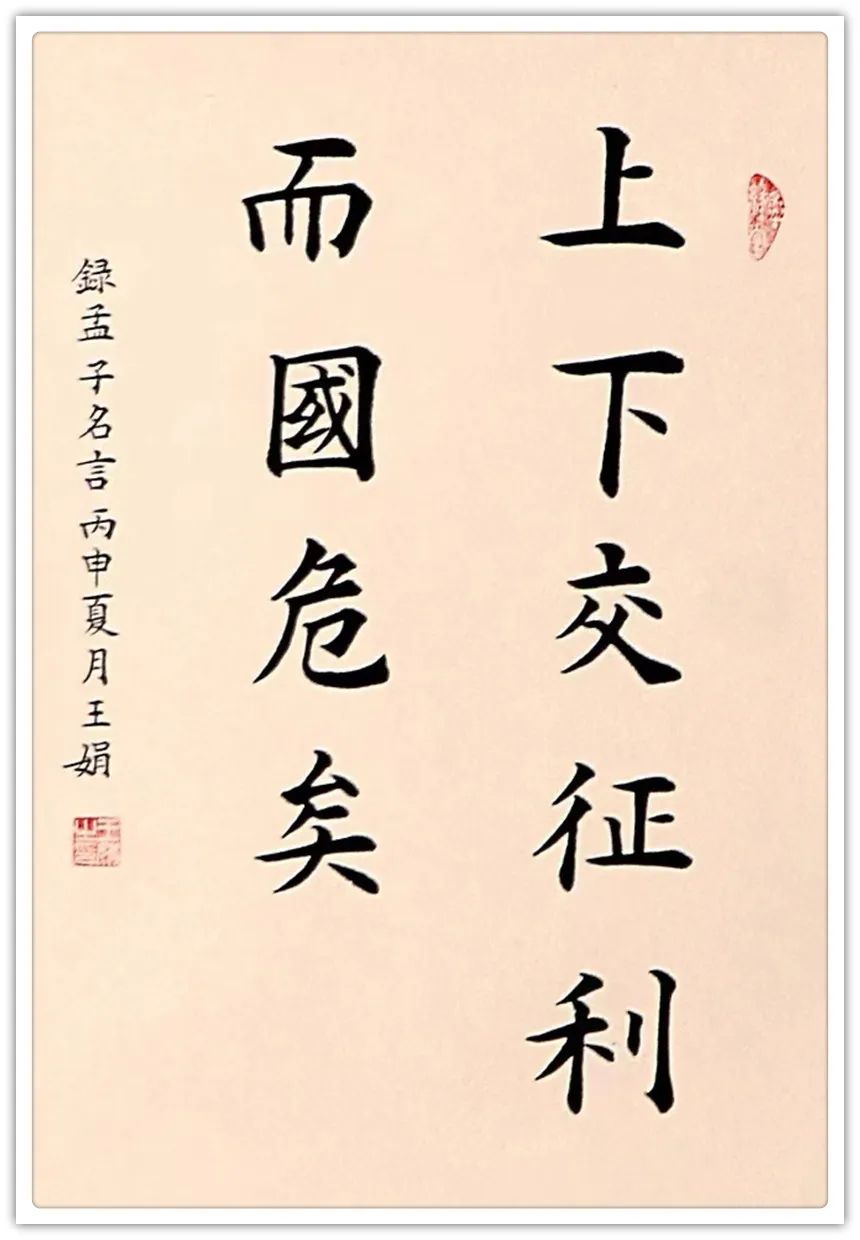 上下交征利
而國危矣
録孟子名言丙申夏月王娟